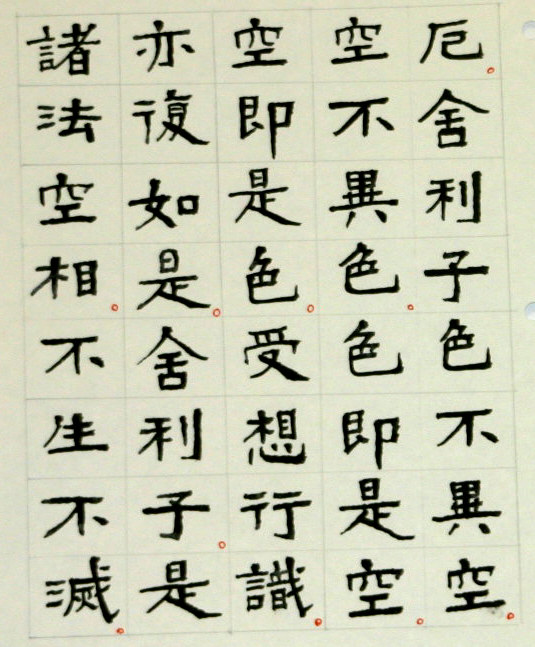 厄。舍利子色不異空。
空不異色。色即是空。
空即是色。受想行識。
亦復如是。舍利子。是
諸法空相。不生不滅。